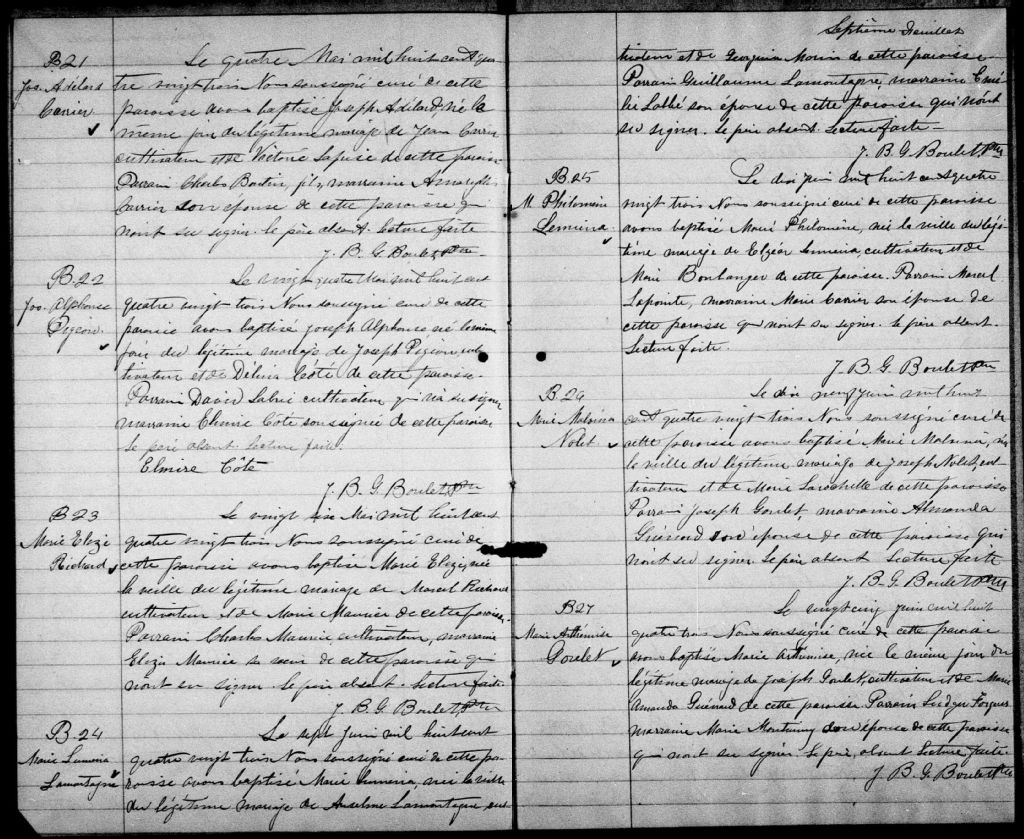 B21
Jos. Adélard
Carrier
Le quatre Mai mil huit cent qua
tre vingt trois Nous soussigné curé de cette
paroisse avons baptisé Joseph Adélard, né le
même jour du légitime mariage de Jean Carrier
cultivateur et de Victorie de cette paroisse
Parrain Charles fils, marraine Amaryllis
Carrier son épouse de cette paroisse qui
n'ont su signer. le père absent. lecture faite
J. B. G. Boulet Ptre
B22
Jos. Alphonse
Pigeon
Le vingt quatre Mai mil huit cent
quatre vingt trois Nous soussigné curé de cette
paroisse avons baptisé Joseph Alphonse né le même
jour du légitime mariage de Joseph Pigeon cul
tivateur et de Délima Côté de cette paroisse.
Parrain David Labrie cultivateur qui n'a su signer
marraine Elmire Côté soussignée de cette paroisse
le père absent lecture faite.
Elmire Côte
J. B. G. Boulet Ptre
B23
Marie Elize
Richard
Le vingt six Mai mil huit cent
quatre vingt trois Nous soussigné curé de
cette paroisse avons baptisé Marie Elize, née
la veille du légitime mariage de Marcel Richard
cultivateur et de Marie Maurice de cette paroisse,
Parrain Charles Maurice cultivateur, marraine
Eliza Maurice sa sœur de cette paroisse qui
n'ont su signer. le père absent. Lecture faite
J. B. G. Boulet Ptre
B24
Marie Lumena
Lamontagne
Le sept Juin mil huit cent
quatre vingt trois Nous soussigné curé de cette pa
roisse avons baptisé Marie Lumena, née la veille
du légitime mariage de Anselme Lamontagne cul
Septième Feuillet
tivateur et de Georgina Morin de cette paroisse
Parrain Guillaume Lamontagne, marraine Emé
lie Labbé son épouse de cette paroisse qui n'ont
su signer. le père absent. Lecture faite
J. B. G. Boulet Ptre
B25
M. Philomène
Lemieux
Le dix juin mil huit cent quatre
vingt trois Nous soussigné curé de cette paroisse
avons baptisé Marie Philomène, née la veille du légi
time mariage de Elzéar Lemieux, cultivateur et de
Marie Boulanger de cette paroisse. Parrain Marcel
Lapointe, marraine Marie Carrier son épouse de
cette paroisse qui n'ont su signer. le père absent.
Lecture faite.
J. B. G. Boulet Ptre
B26
Marie Malvina
Nolet
Le dix neuf Juin mil huit
cent quatre vingt-trois Nous soussigné curé de
cette paroisse avons baptisé Marie Malvina, née
la veille du légitime mariage de Joseph Nolet, cul
tivateur et de Marie Larochelle de cette paroisse
Parrain Joseph Goulet, marraine Almanda
Guénard son épouse de cette paroisse qui
n'ont su signer le père absent Lecture faite
J. B. G. Boulet Ptre
B27
Marie Arthémise
Goulet
Le vingt cinq Juin mil huit
quatre trois Nous soussigné curé de cette paroisse
avons baptisé Marie Arthémise, née le même jour du
légitime mariage de Joseph Goulet, cultivateur et de Marie
Amanda Guénard de cette paroisse Parrain Ludger Forgues
marraine Marie Montminy son épouse de cette paroisse
qui n'ont su signer le père absent Lecture faite
J. B. G. Boulet Ptre